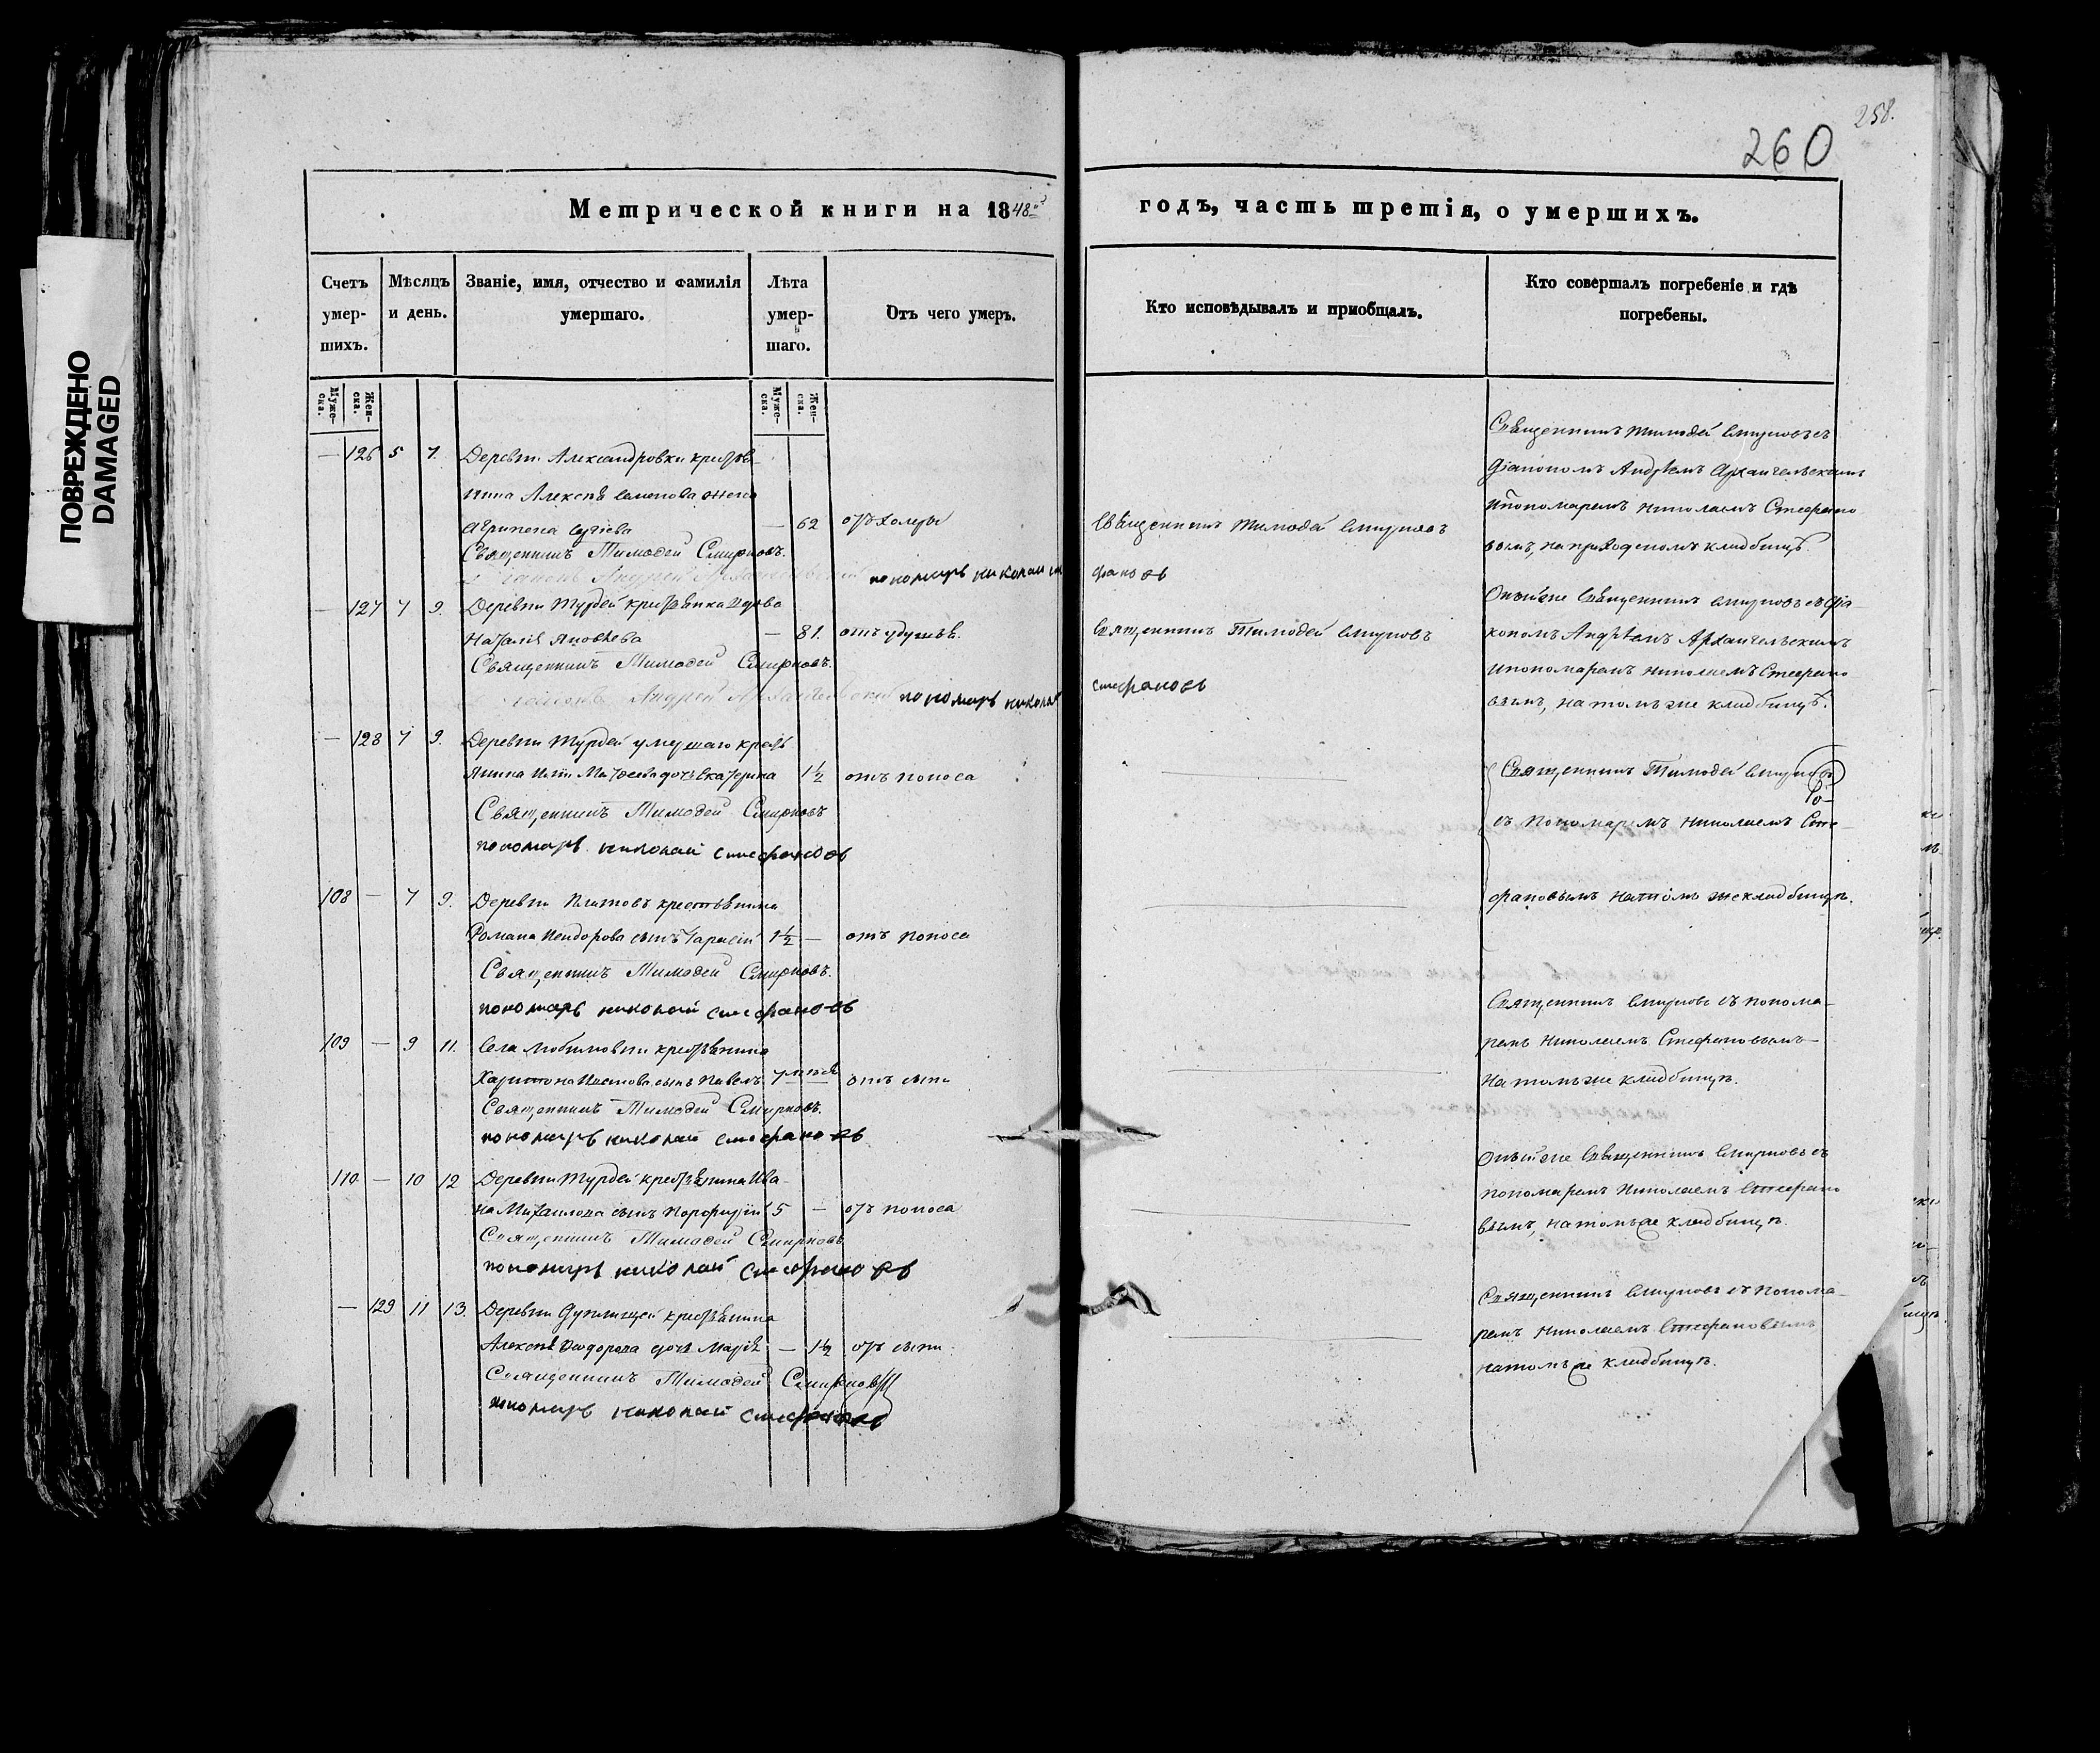 ПОВРЕЖДЕНО
DAMAGED
258.
260
Метрической книги на 1848
годъ, часть третія, о умершихъ.
Счетъ умер-шихъ.
Мѣсяцъ и день.
Званіе, имя, отчество и фамилія умершаго.
Лѣта умер-шаго.
Отъ чего умеръ.
Кто исповѣдывалъ и приобщалъ.
Кто совершалъ погребеніе и гдѣ погребены.
Муже-ска.
Жен-ска.
Муже-ска.
Жен-ска.
— 126 5 7. Деревни Александровки крестья-
нина Алексѣя Семенова жена
Агрипена — 62 отъ холеры
Священникъ Тимофей Смирновъ
Священникъ Тимофей Смирновъ.
Діаконъ Андрей Архангельскій пономарь николай сте
фановъ
Священникъ Тимофей Смирновъ съ
Діакономъ Андреемъ Архангельскимъ
и пономаремъ Николаемъ Стефано
вымъ, на приходскомъ кладбищѣ.
— 127 7 9. Деревни Турдей крестьянка вдова
Наталія Яковлева — 81. отъ удушья.
Священникъ Тимофей Смирновъ
Священникъ Тимофей Смирновъ.
Діаконъ Андрей Архангельскій пономарь николай
стефановъ
Онъ же Священникъ Смирновъ съ Діа-
кономъ Андреемъ Архангельскимъ
и пономаремъ Николаемъ Стефано
вымъ, на томъ же кладбищѣ.
— 128 7 9. Деревни Турдей умершаго кресть
янина Матвеева дочь Екатерина 1½ отъ поноса
Священникъ Тимофей Смирновъ
пономарь николай стефановъ
Священникъ Тимофей Смирновъ
съ Пономаремъ Николаемъ Сте-
фановымъ на томъ же кладбищѣ.
108 — 7 9. Деревни крестьянина
Романа сынъ Тарасій 1½ — отъ поноса
Священникъ Тимофей Смирновъ.
пономарь николай стефановъ
109 — 9 11. Села крестьянина
Харитона сынъ Павелъ 7 отъ сыпи
Священникъ Тимофей Смирновъ.
пономарь николай стефановъ
Священникъ Смирновъ съ понома-
ремъ Николаемъ Стефановымъ
на томъ же кладбищѣ.
110 — 10 12 Деревни Турдей крестьянина Ива-
на Михаилова сынъ Порфирій 5 — отъ поноса
Священникъ Тимофей Смирновъ
пономарь николай стефановъ
Онъ же Священникъ Смирновъ съ
пономаремъ Николаемъ Стефано
вымъ, на томъ же кладбищѣ.
— 129 11 13. Деревни крестьянина
Алексѣя Ѳеодорова дочь Марія — 1½ отъ сыпи
Священникъ Тимофей Смирновъ
пономарь николай стефановъ
Священникъ Смирновъ съ Понома-
ремъ Николаемъ Стефановымъ
на томъ же кладбищѣ.